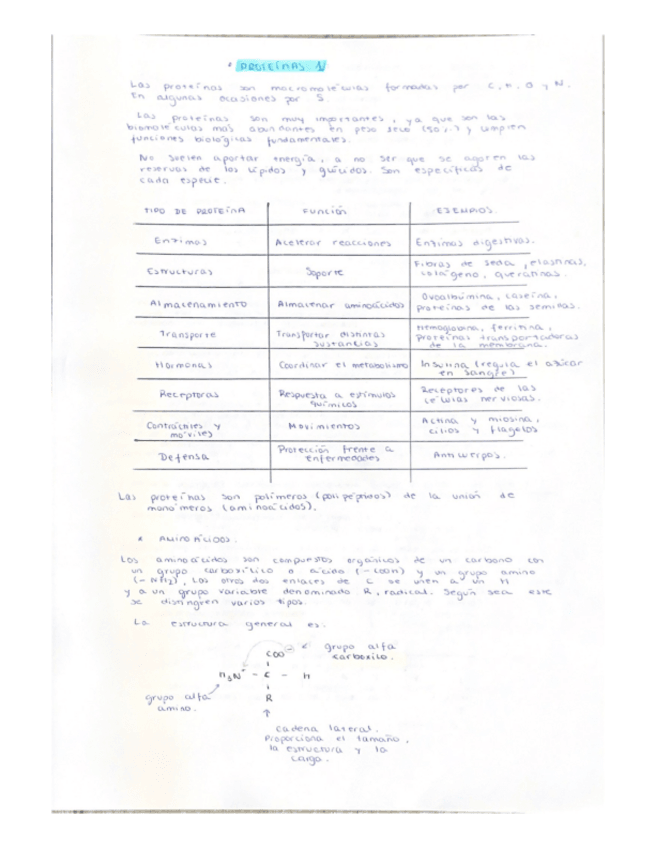 * PROTEÍNAS 1/
Las proteínas son macromoléculas formadas por C, H, O y N.
En algunas ocasiones por S.
Las proteínas son muy importantes, ya que son las
biomoléculas más abundantes en peso seco (50%) y cumplen
funciones biológicas fundamentales.
No suelen aportar energía, a no ser que se agoten las
reservas de los lípidos y glúcidos. Son específicas de
cada especie.
TIPO DE PROTEÍNA FUNCIÓN EJEMPLOS.
Enzimas Acelerar reacciones Enzimas digestivas.
Estructuras Soporte Fibras de seda, elastinas, colágeno, queratinas.
Almacenamiento Almacenar aminoácidos Ovoalbúmina, caseína, proteínas de las semillas.
Transporte Transportar distintas sustancias Hemoglobina, ferritina, Proteínas transportadoras de la membrana.
Hormonas Coordinar el metabolismo Insulina (regula el azúcar en sangre)
Receptoras Respuesta a estímulos químicos Receptores de las células nerviosas.
Contráctiles y móviles Movimientos Actina y miosina, cilios y flagelos
Defensa Protección frente a enfermedades Anticuerpos.
Las proteínas son polímeros (polipéptidos) de la unión de
monómeros (aminoácidos).
* AMINOÁCIDOS.
Los aminoácidos son compuestos orgánicos de un carbono con
un grupo carboxílico o ácido (-COOH) y un grupo amino
(-NH2), Los otros dos enlaces de C se unen a un H
y a un grupo variable denominado R, radical. Según sea este
se distingen varios tipos.
La estructura general es:
COO⁻ ← grupo alfa
carboxilo.
H3N⁺ - C - H
grupo alfa
amino.
R
↑
Cadena lateral.
Proporciona el tamaño,
la estructura y la
carga.